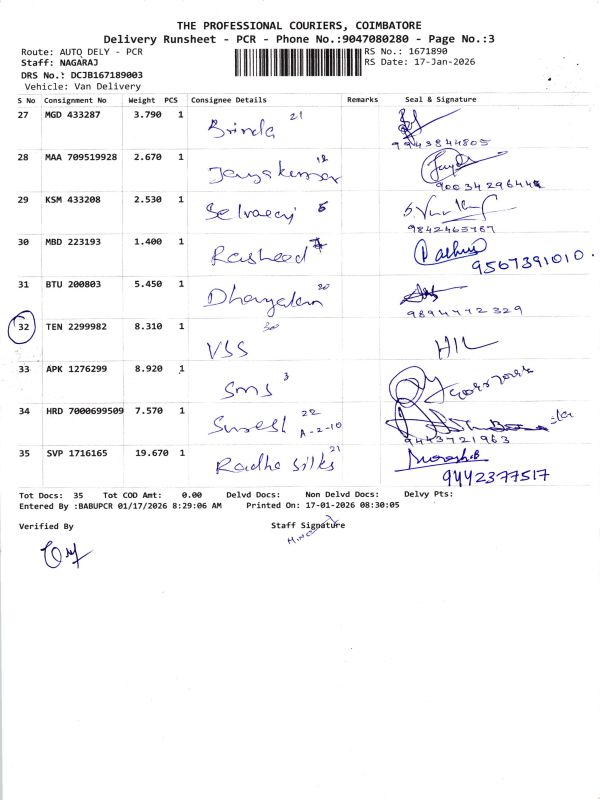 THE PROFESSIONAL COURIERS, COIMBATORE
Delivery Runsheet - PCR - Phone No.:9047080280 - Page No.:3
Route: AUTO DELY - PCR RS No.: 1671890
Staff: NAGARAJ RS Date: 17-Jan-2026
DRS No.: DCJB167189003
Vehicle: Van Delivery
S No Consignment No Weight PCS Consignee Details Remarks Seal & Signature
27 MGD 433287 3.790 1 Brinda 21
9943844805
28 MAA 709519928 2.670 1 Jayakumar 12
29 KSM 433208 2.530 1 Selvaraj 5
9842463787
30 MBD 223193 1.400 1 Rasheed
9567391010.
31 BTU 200803 5.450 1 Dhayalan 20
9894442329
32 TEN 2299982 8.310 1 VSS 30 HIL
33 APK 1276299 8.920 1 Sms 3
34 HRD 7000699509 7.570 1 Suresh 22 A-2-10
9443721963
35 SVP 1716165 19.670 1 Radha Silks 21
9442377517
Tot Docs: 35 Tot COD Amt: 0.00 Delvd Docs: Non Delvd Docs: Delvy Pts:
Entered By :BABUPCR 01/17/2026 8:29:06 AM Printed On: 17-01-2026 08:30:05
Verified By Staff Signature